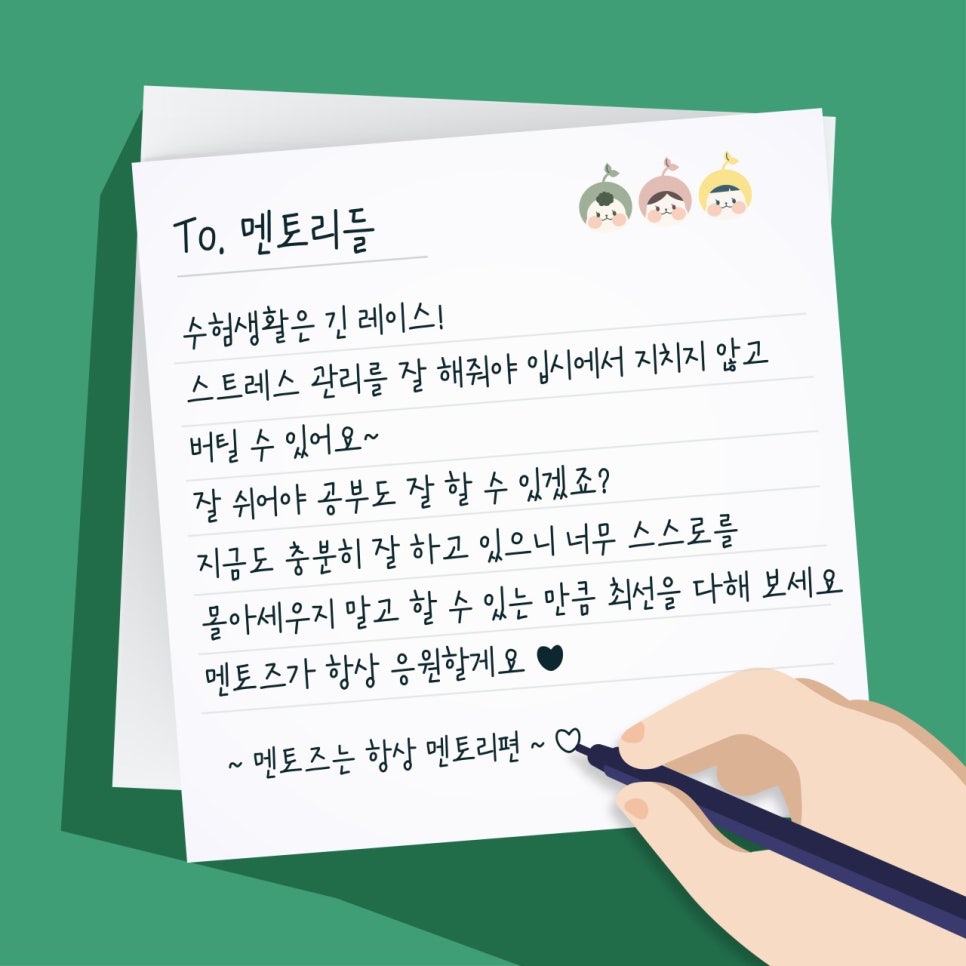 To. 멘토리들
수험생활은 긴 레이스!
스트레스 관리를 잘 해줘야 입시에서 지치지 않고
버틸 수 있어요~
잘 쉬어야 공부도 잘 할 수 있겠죠?
지금도 충분히 잘 하고 있으니 너무 스스로를
몰아세우지 말고 할 수 있는 만큼 최선을 다해 보세요
멘토즈가 항상 응원할게요 ♥
~ 멘토즈는 항상 멘토리편 ~ ♡